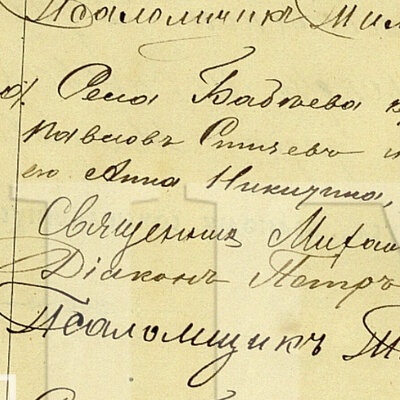 Псаломщикъ
Села Бабжева
Павловъ
его Анна Никитина,
Священникъ Михаи
Діаконъ Петръ
Псаломщикъ